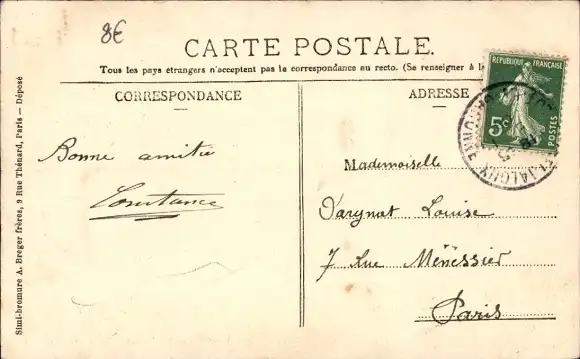 8€
CARTE POSTALE.
Tous les pays étrangers n'acceptent pas la correspondance au recto. (Se renseigner à la
CORRESPONDANCE
ADRESSE
RÉPUBLIQUE FRANÇAISE
5c
POSTES
Bonne amitié
Constance
Mademoiselle
Darynat Louise
7 Rue Ménessier
Paris
Simi-bromure A. Breger frères, 9 Rue Thénard, Paris — Déposé